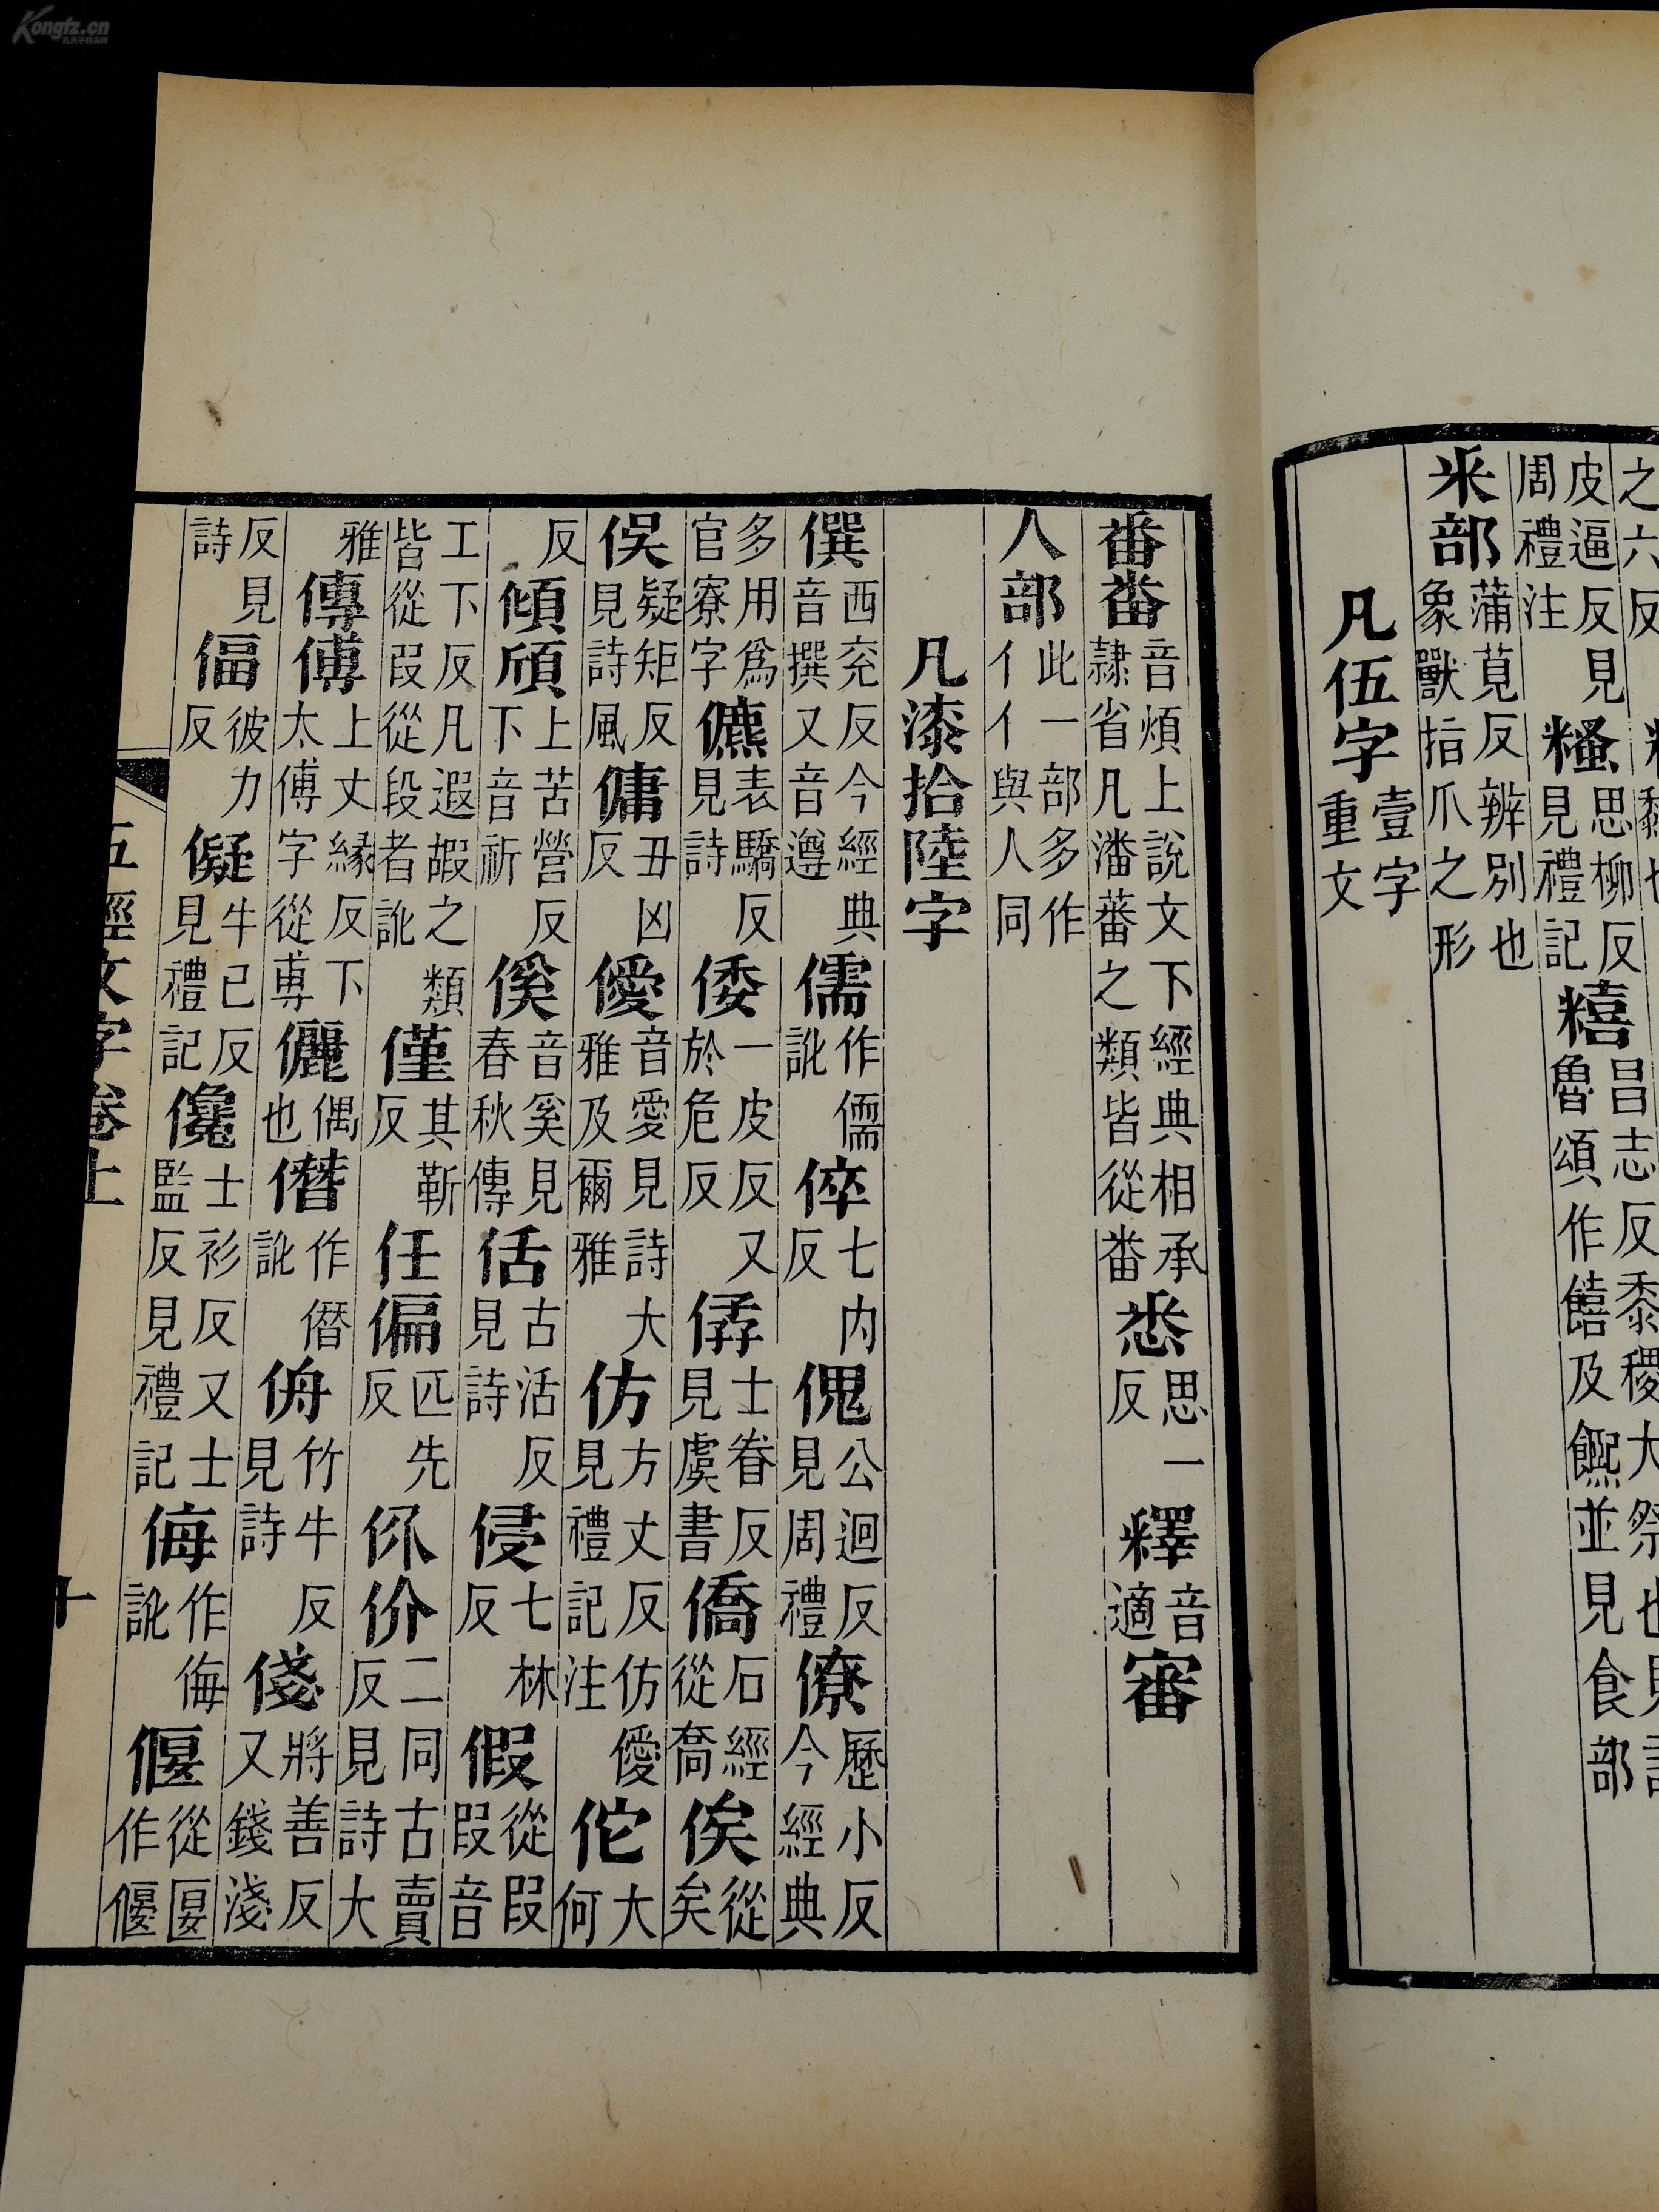 之六反
皮逼反見周禮注糔思柳反見禮記糦昌志反黍稷大祭也見魯頌作饎及䊠並見食部
釆部蒲莧反辨別也象獸指爪之形
凡伍字壹字重文
番畨音煩上說文下經典相承隸省凡潘蕃之類皆從畨悉思一反釋音適審
人部此一部多作亻亻與人同
凡漆拾陸字
僎西兖反今經典音撰又音遵儒作儒訛倅七内反傀公迴反見周禮僚歷小反今經典
多用爲官寮字儦表驕反見詩倭一皮反又於危反僝士眷反見虞書僑石經從喬俟從矣
俁疑矩反見詩風傭丑凶反僾音愛見詩大雅及爾雅仿方丈反仿僾見禮記注佗大何
反傾頎上苦營反下音祈傒音奚見春秋傳佸古活反見詩侵七林反假從叚叚音
工下反凡遐嘏之類皆從叚從段者訛僅其靳反任偏匹先反㑘价二同古賣反見詩大
雅傳傅上丈緣反下太傅字從尃儷偶也僭作僣訛侜竹牛反見詩俴將善反又錢淺
反見詩偪彼力反儗牛已反見禮記儳士衫反又士監反見禮記侮作侮訛偃從匽作偃
五經文字卷上
十
Kongfz.cn